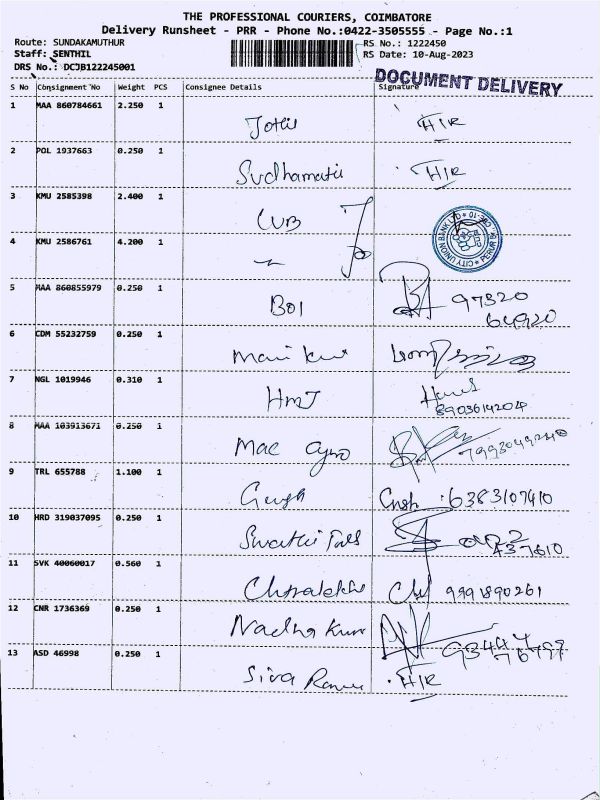 THE PROFESSIONAL COURIERS, COIMBATORE
Delivery Runsheet - PRR - Phone No.:0422-3505555 - Page No.:1
Route: SUNDAKAMUTHUR RS No.: 1222450
Staff: SENTHIL RS Date: 10-Aug-2023
DRS No.: DCJB122245001
DOCUMENT DELIVERY
S No Consignment No Weight PCS Consignee Details Signature
1 MAA 860784661 2.250 1
Jothi H/R
2 POL 1937663 0.250 1
Sudhamathi H/R
3 KMU 2585398 2.400 1
CUB
CITY UNION BANK LTD PERUR
4 KMU 2586761 4.200 1
5 MAA 860855979 0.250 1
BOI 97320
64920
6 CDM 55232759 0.250 1
7 NGL 1019946 0.310 1
8 MAA 103913671 0.250 1
Mac
9 TRL 655788 1.100 1
6383107410
10 HRD 319037095 0.250 1
Swathi
11 SVK 40060017 0.560 1
9991890261
12 CNR 1736369 0.250 1
13 ASD 46998 0.250 1
Siva H/R